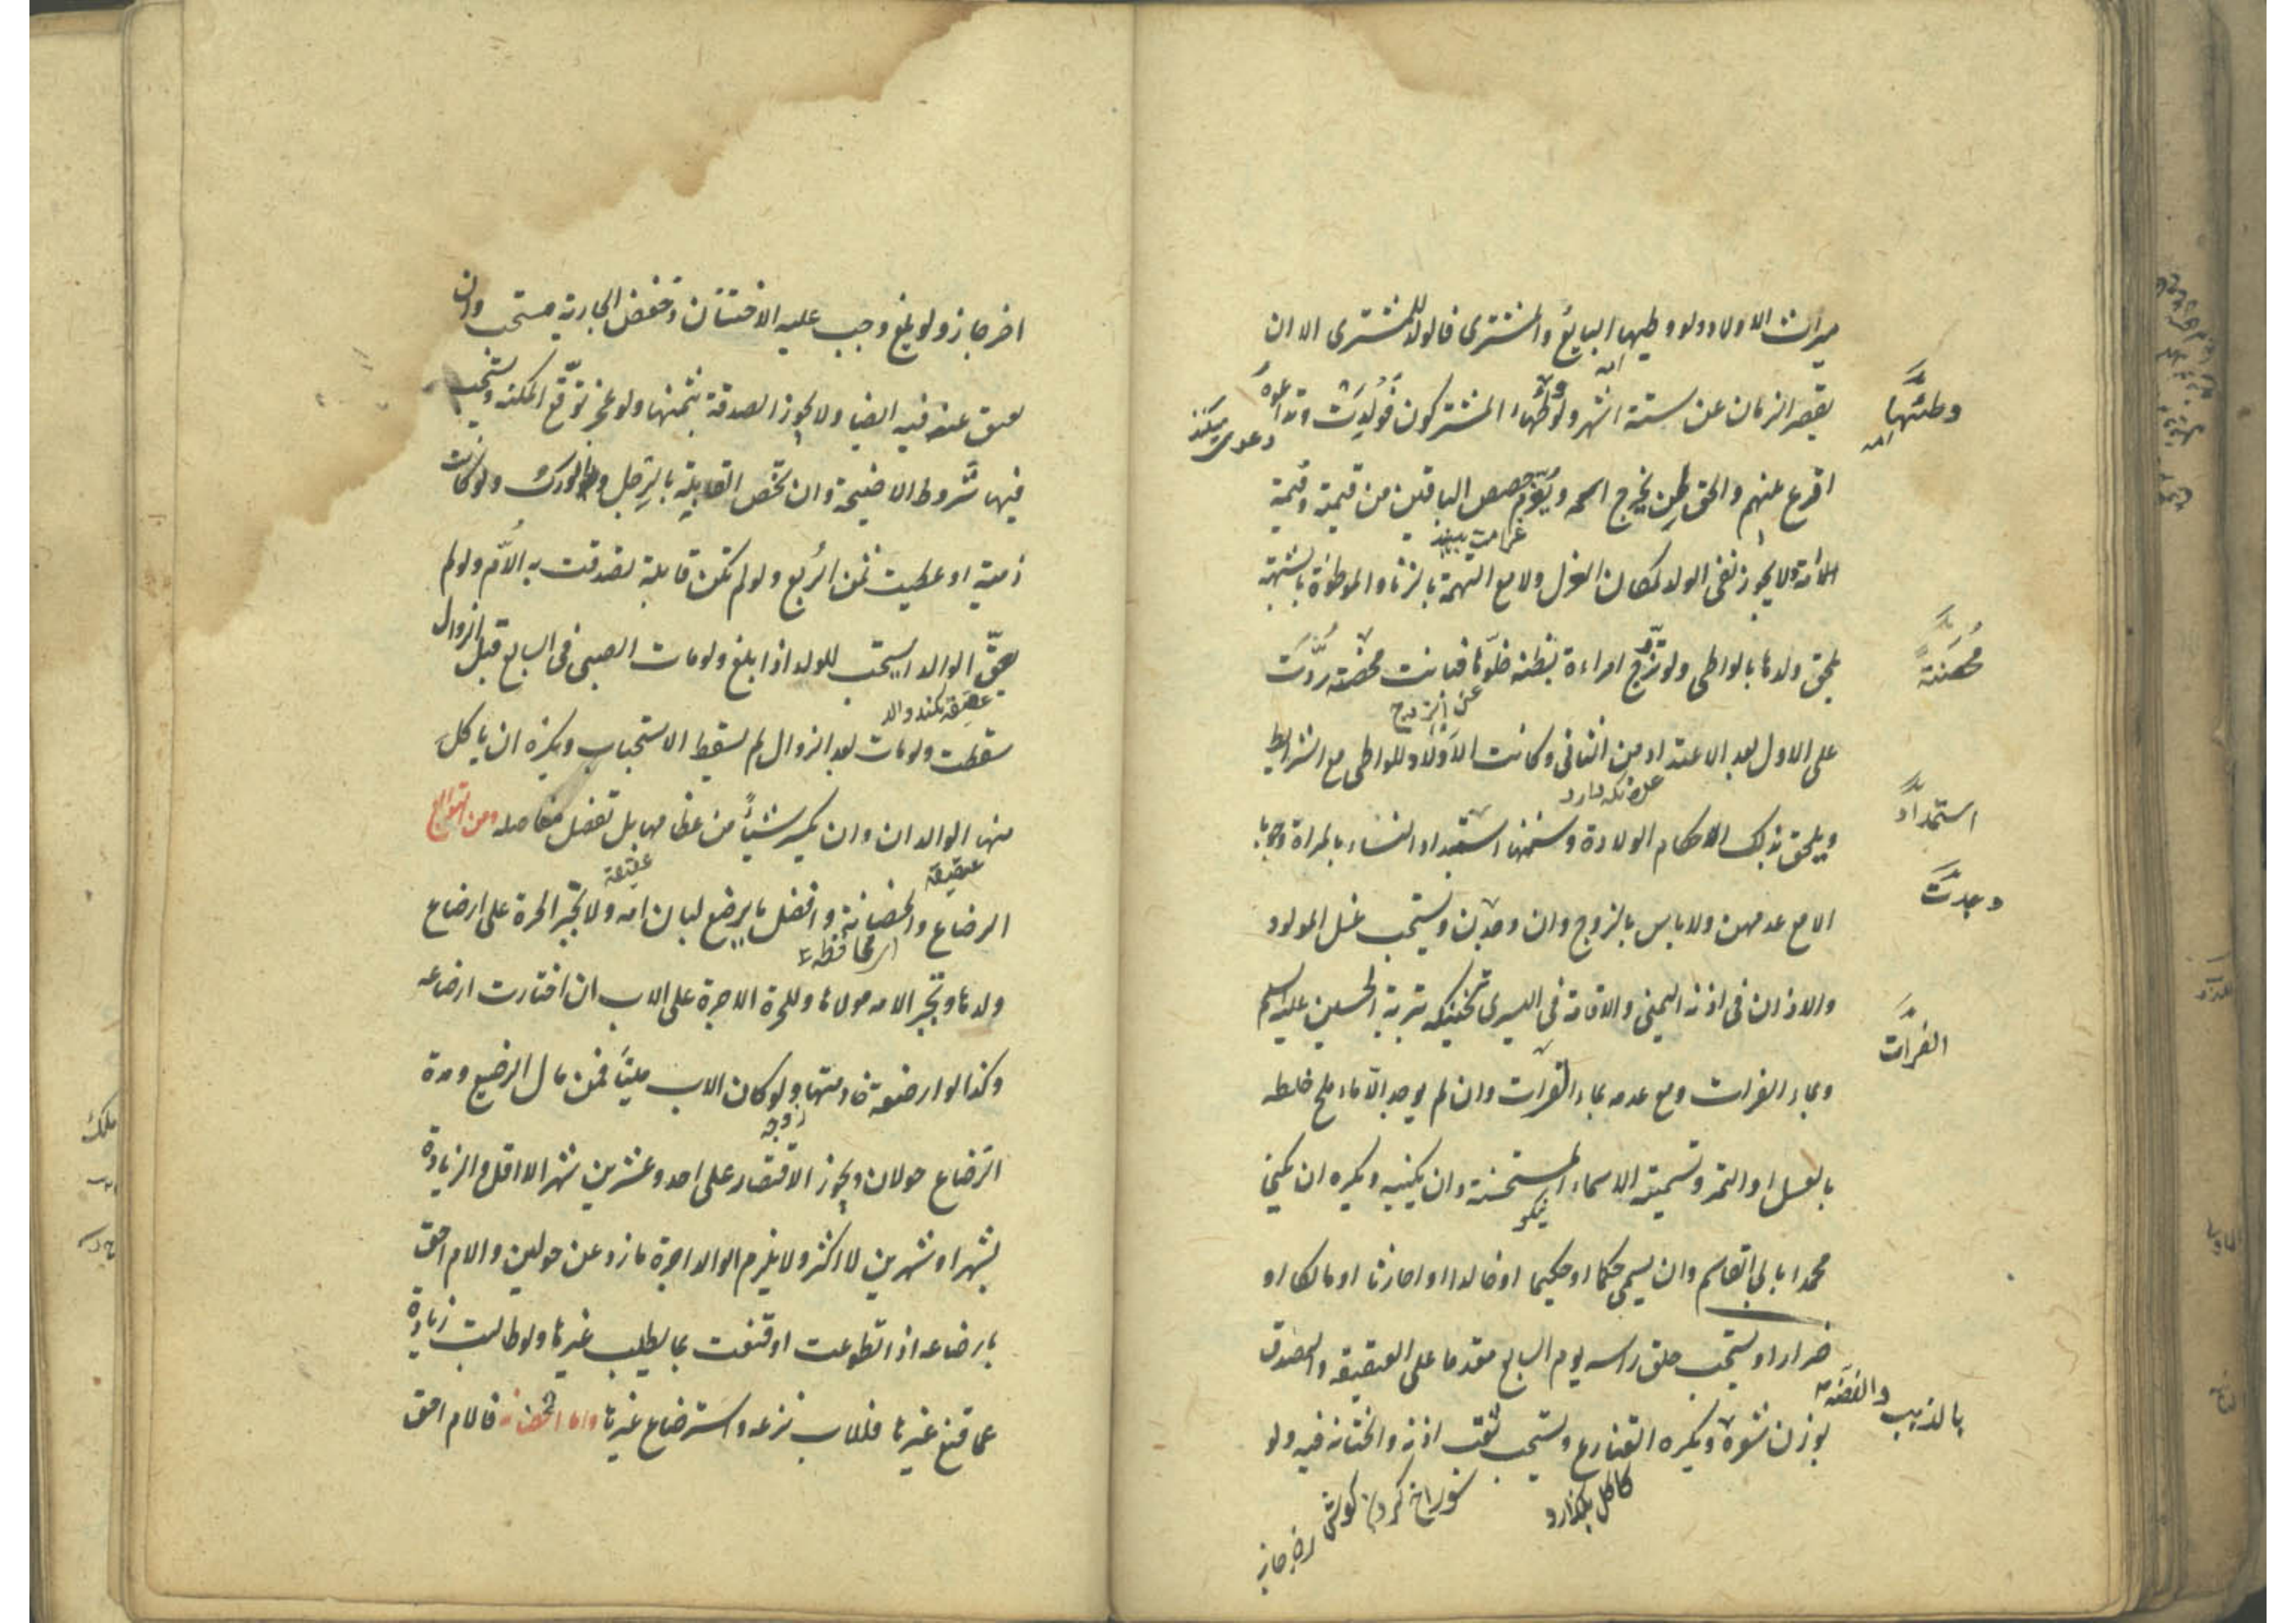 ميراث الاولاد ولو وطيها البايع والمشترى فالولد للمشترى الا ان
يقصر الزمان عن ستة اشهر ولو وطئها المشتركون فولدت وتداعوه
وطئها
امه
دعوى ميكنند
اقرع بينهم والحق بمن يخرج اسمه ويغرم حصص الباقين من قيمته وقيمة
غرامت
امه ولا يجوز نفى الولد لمكان العزل ولا مع التهمة بالزنا والموطوءة بالشبهة
يلحق ولدها بالواطى ولو تزوج امراءة بظنه خلوها فبانت محصنة ردت
محصنة
عن الزوج
على الاول بعد الاعتداد من الثانى وكانت الاولاد للواطى مع الشرايط
ويلحق بذلك احكام الولادة وسننها استبداد النساء بالمراة وجوبا
استبداد
الا مع عدمهن ولا باس بالزوج وان وجدن ويستحب غسل المولود
وجدت
والاذان فى اذنه اليمنى والاقامة فى اليسرى وتحنيكه بتربة الحسين عليه السلم
وبماء الفرات ومع عدمه بماء الفرات وان لم يوجد الا ماء ملح خلطه
الفرات
بالعسل او التمر وتسميته الاسماء المستحسنة وان يكنيه ويكره ان يكنى
نيكو
محمدا بابى القاسم وان يسمى حكما او حكيما او خالدا او حارثا او مالكا او
ضرارا ويستحب حلق راسه يوم السابع مقدما على العقيقة والتصدق
بالذهب والفضه
بوزن شعره ويكره القنازع ويستحب ثقب اذنه والختانه فيه ولو
كاكل بكذارد
سوراخ كردن كوش
اخر جاز
اخر جاز ولو بلغ وجب عليه الاختتان وخفض الجارية مستحب وان
يعق عنه فيه ايضا ولا يجوز الصدقة بثمنها ولو عجز توقع المكنة ويستحب
فيها شروط الاضحية وان تخص القابلة بالرجل والورك ولو كانت
ذمية اعطيت ثمن الربع ولو لم تكن قابلة تصدقت به الام ولو لم
يعق الوالد استحب للولد اذا بلغ ولو مات الصبى فى السابع قبل الزوال
عقيقه نكند والد
سقطت ولو مات بعد الزوال لم يسقط الاستحباب ويكره ان ياكل
منها الوالدان وان يكسر شيئا من عظامها بل تفصل مفاصله ومن التوابع
عقيقة
عقيقة
الرضاع والحضانة وافضل ما يرضع لبان امه ولا تجبر الحرة على ارضاع
اى محافظه
ولدها وتجبر الامه مولاها وللحرة الاجرة على الاب ان اختارت ارضاعه
وكذا لو ارضعته خادمتها ولو كان الاب ميتا فمن مال الرضيع ومدة
زوجه
الرضاع حولان ويجوز الاقتصار على احد وعشرين شهرا لا اقل والزيادة
بشهر او شهرين لا اكثر ولا يلزم الوالد اجرة ما زاد عن حولين والام احق
بارضاعه اذا تطوعت او قنعت بما يطلب غيرها ولو طالبت زيادة
عما قنع غيرها فللاب نزعه واسترضاع غيرها واما الحضانة فالام احق